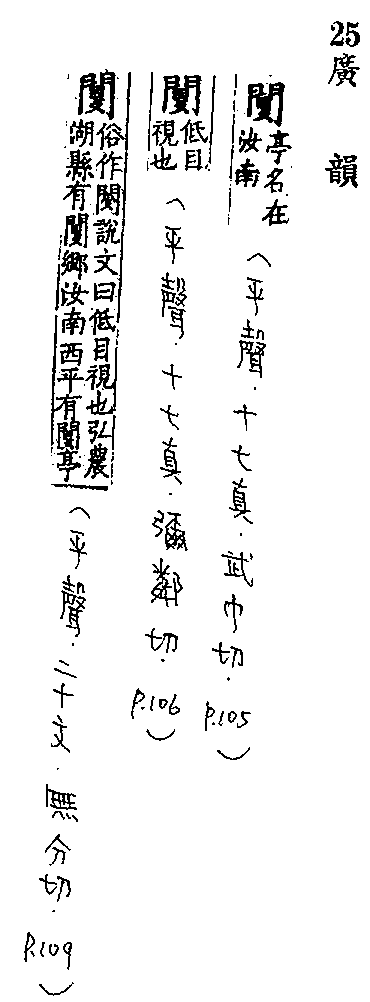 25廣韻
閺亭名在
汝南
(平聲.十七真.武巾切.P.105)
閺低目
視也
(平聲.十七真.彌鄰切.P.106)
閺俗作閿說文曰低目視也弘農
湖縣有閺鄉汝南西平有閺亭
(平聲.二十文.無分切.P.109)